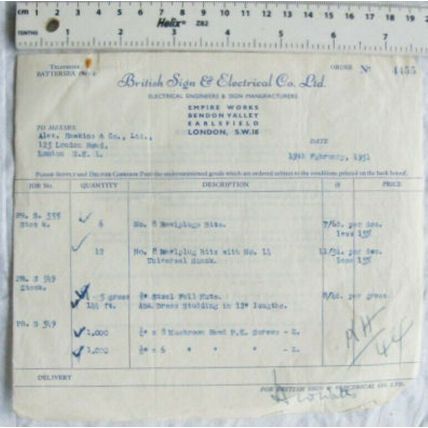 cm 1 2 3 4 5 6 7 8 9 10 11 12 13 14 15
TENTHS Helix Z82
TELEPHONE
BATTERSEA
ORDER No 4455
British Sign & Electrical Co. Ltd.
ELECTRICAL ENGINEERS & SIGN MANUFACTURERS
EMPIRE WORKS
BENDON VALLEY
EARLSFIELD
LONDON, S.W.18
TO MESSRS
Alex. Hawkins & Co., Ltd.,
123 London Road,
London S.E.1.
DATE
19th February, 1951
PLEASE SUPPLY AND DELIVER CARRIAGE PAID the undermentioned goods which are ordered subject to the conditions printed on the back hereof.
JOB No. QUANTITY DESCRIPTION @ PRICE
PR. S. 555
Stock. 6 No. 8 Rawlplugs Bits. 7/6d. per doz.
less 15%
12 No. 8 Rawlplug Bits with No. 14 per doz.
Universal Shank. less 15%
PR. S 549
Stock. 5 gross Steel Full Nuts. per gross.
144 ft. Brass Studding in 12" lengths.
PR. S 549 1,000 x 8 Mushroom Head P.K. Screws - Z.
1,000 x 6 " " " - Z.
DELIVERY
FOR BRITISH SIGN & ELECTRICAL CO. LTD.